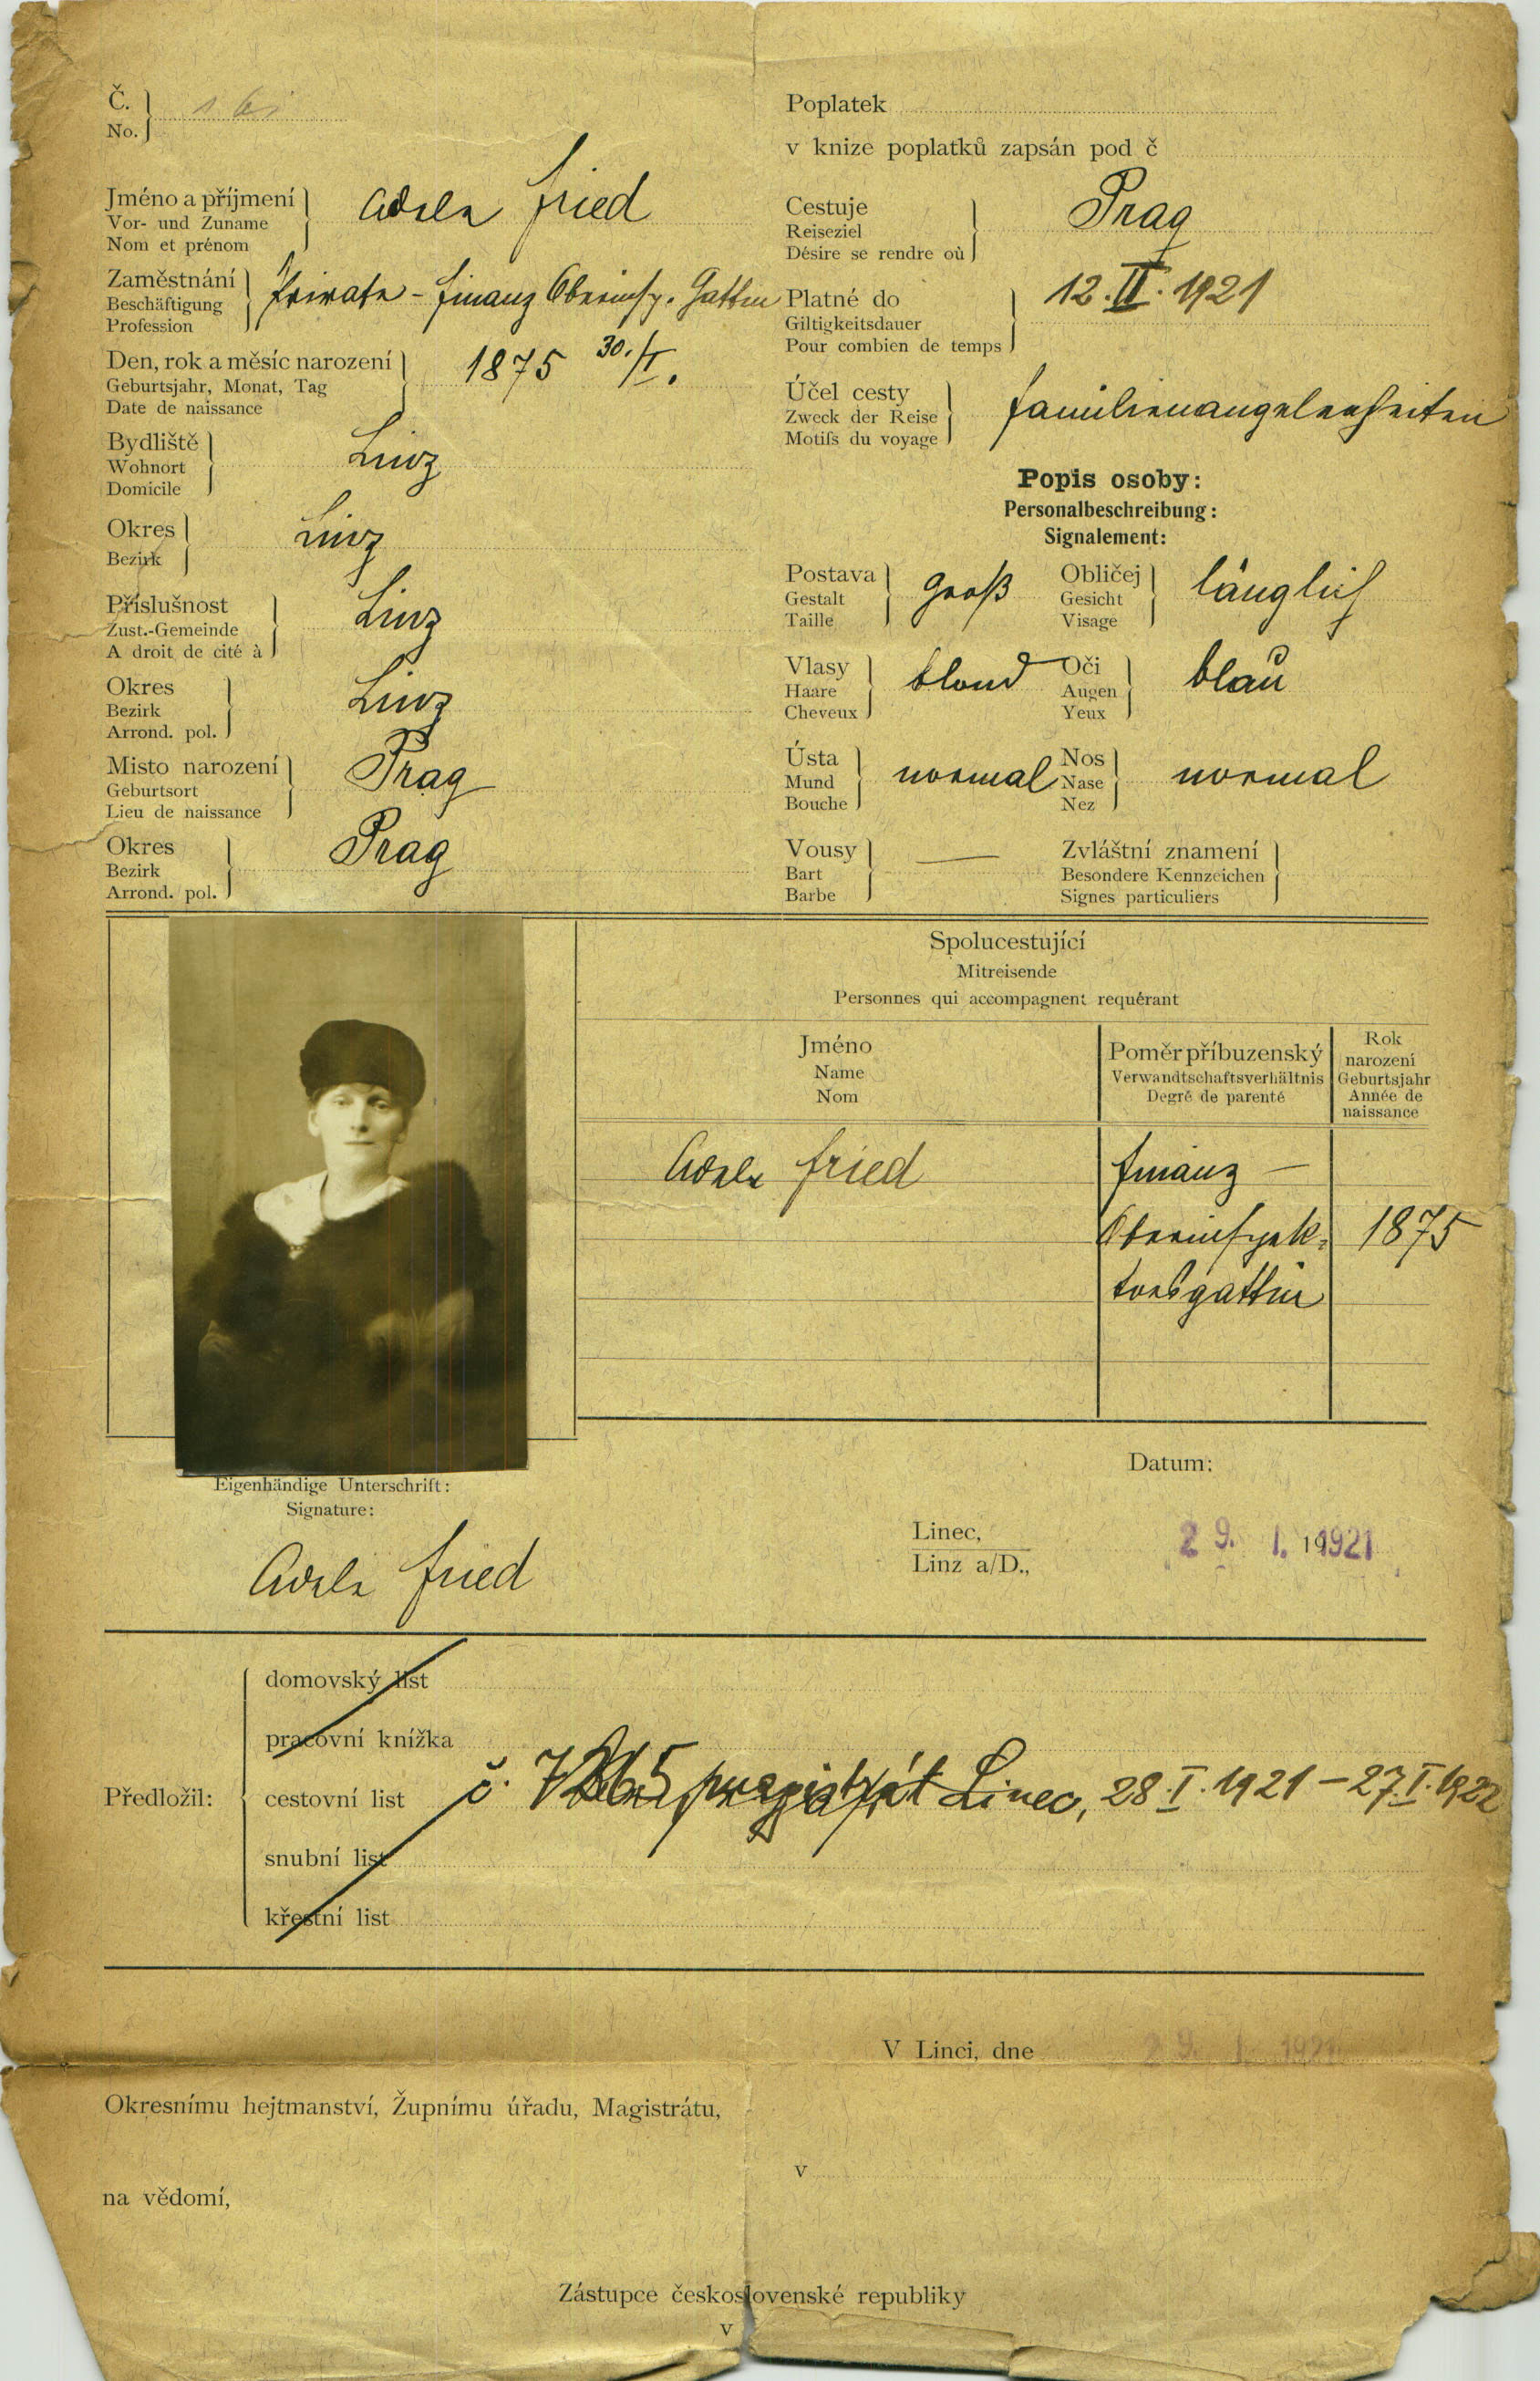 Č.
No.
Poplatek
v knize poplatků zapsán pod č
Jméno a příjmení
Vor- und Zuname
Nom et prénom
Adele Fried
Cestuje
Reiseziel
Désire se rendre où
Prag
Zaměstnání
Beschäftigung
Profession
Private - Finanz Oberinsp. Gattin
Platné do
Giltigkeitsdauer
Pour combien de temps
12. II. 1921
Den, rok a měsíc narození
Geburtsjahr, Monat, Tag
Date de naissance
1875 30./I.
Účel cesty
Zweck der Reise
Motifs du voyage
Familienangelegenheiten
Bydliště
Wohnort
Domicile
Linz
Okres
Bezirk
Linz
Příslušnost
Zust.-Gemeinde
A droit de cité à
Linz
Okres
Bezirk
Arrond. pol.
Linz
Misto narození
Geburtsort
Lieu de naissance
Prag
Okres
Bezirk
Arrond. pol.
Prag
Popis osoby:
Personalbeschreibung:
Signalement:
Postava
Gestalt
Taille
groß
Obličej
Gesicht
Visage
länglich
Vlasy
Haare
Cheveux
blond
Oči
Augen
Yeux
blau
Ústa
Mund
Bouche
normal
Nos
Nase
Nez
normal
Vousy
Bart
Barbe
—
Zvláštní znamení
Besondere Kennzeichen
Signes particuliers
Spolucestující
Mitreisende
Personnes qui accompagnent requérant
Jméno
Name
Nom
Poměr příbuzenský
Verwandtschaftsverhältnis
Degré de parenté
Rok
narození
Geburtsjahr
Année de
naissance
Adele Fried Finanz —
Oberinspek= 1875
torsgattin
Eigenhändige Unterschrift:
Signature:
Adele Fried
Datum:
Linec,
Linz a/D.,
29. I. 1921
Předložil:
domovský list
pracovní knížka
cestovní list č. magistrát Linec, 28. I. 1921 – 27. I. 1922
snubní list
křestní list
V Linci, dne 29. I. 1921
Okresnímu hejtmanství, Župnímu úřadu, Magistrátu,
v
na vědomí,
Zástupce československé republiky
v